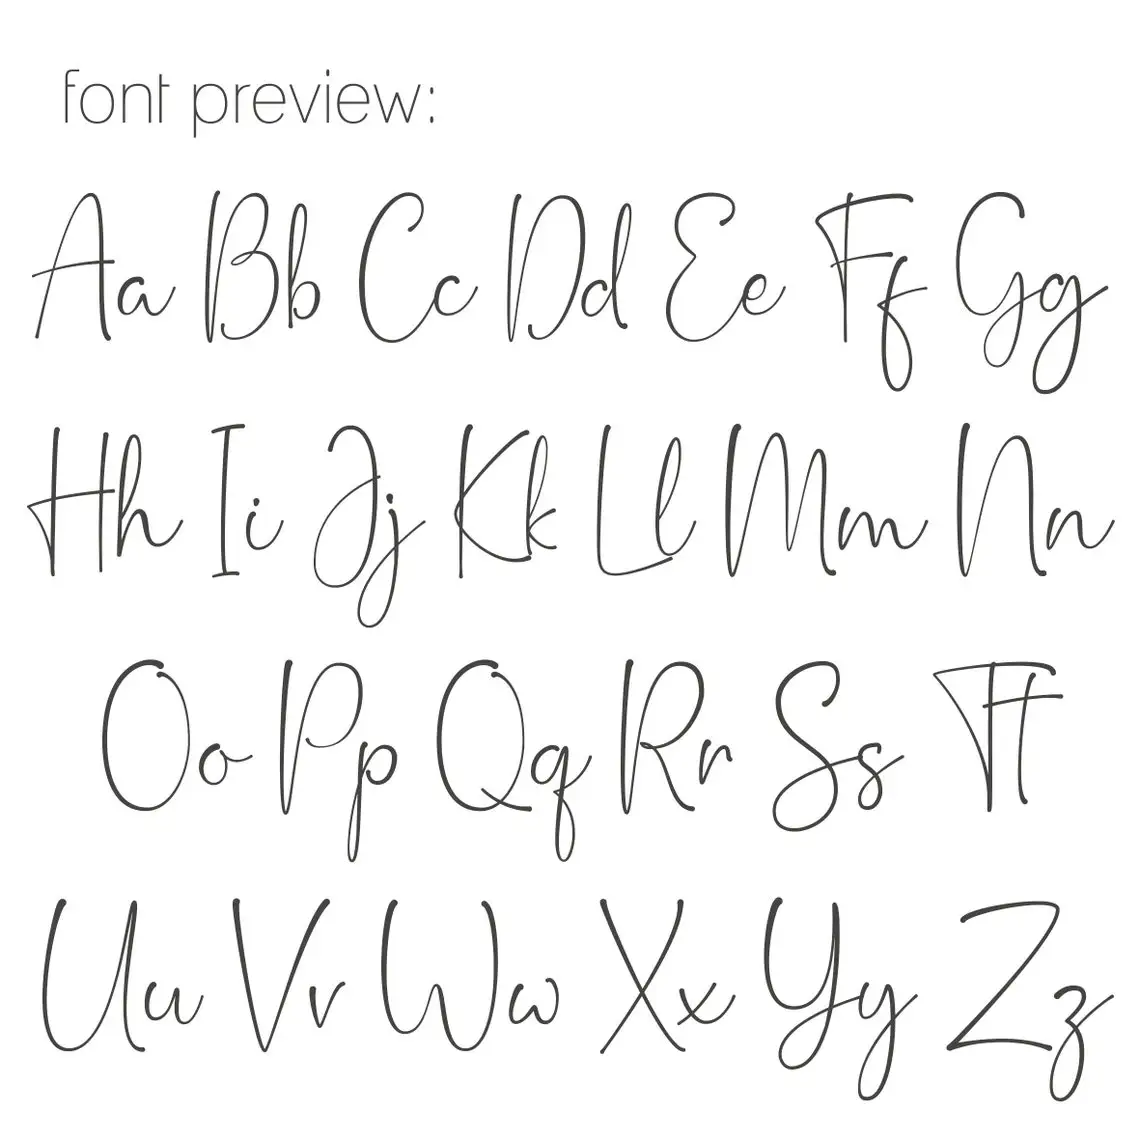 font preview:
Aa Bb Cc Dd Ee Ff Gg
Hh Ii Jj Kk Ll Mm Nn
Oo Pp Qq Rr Ss Tt
Uu Vv Ww Xx Yy Zz